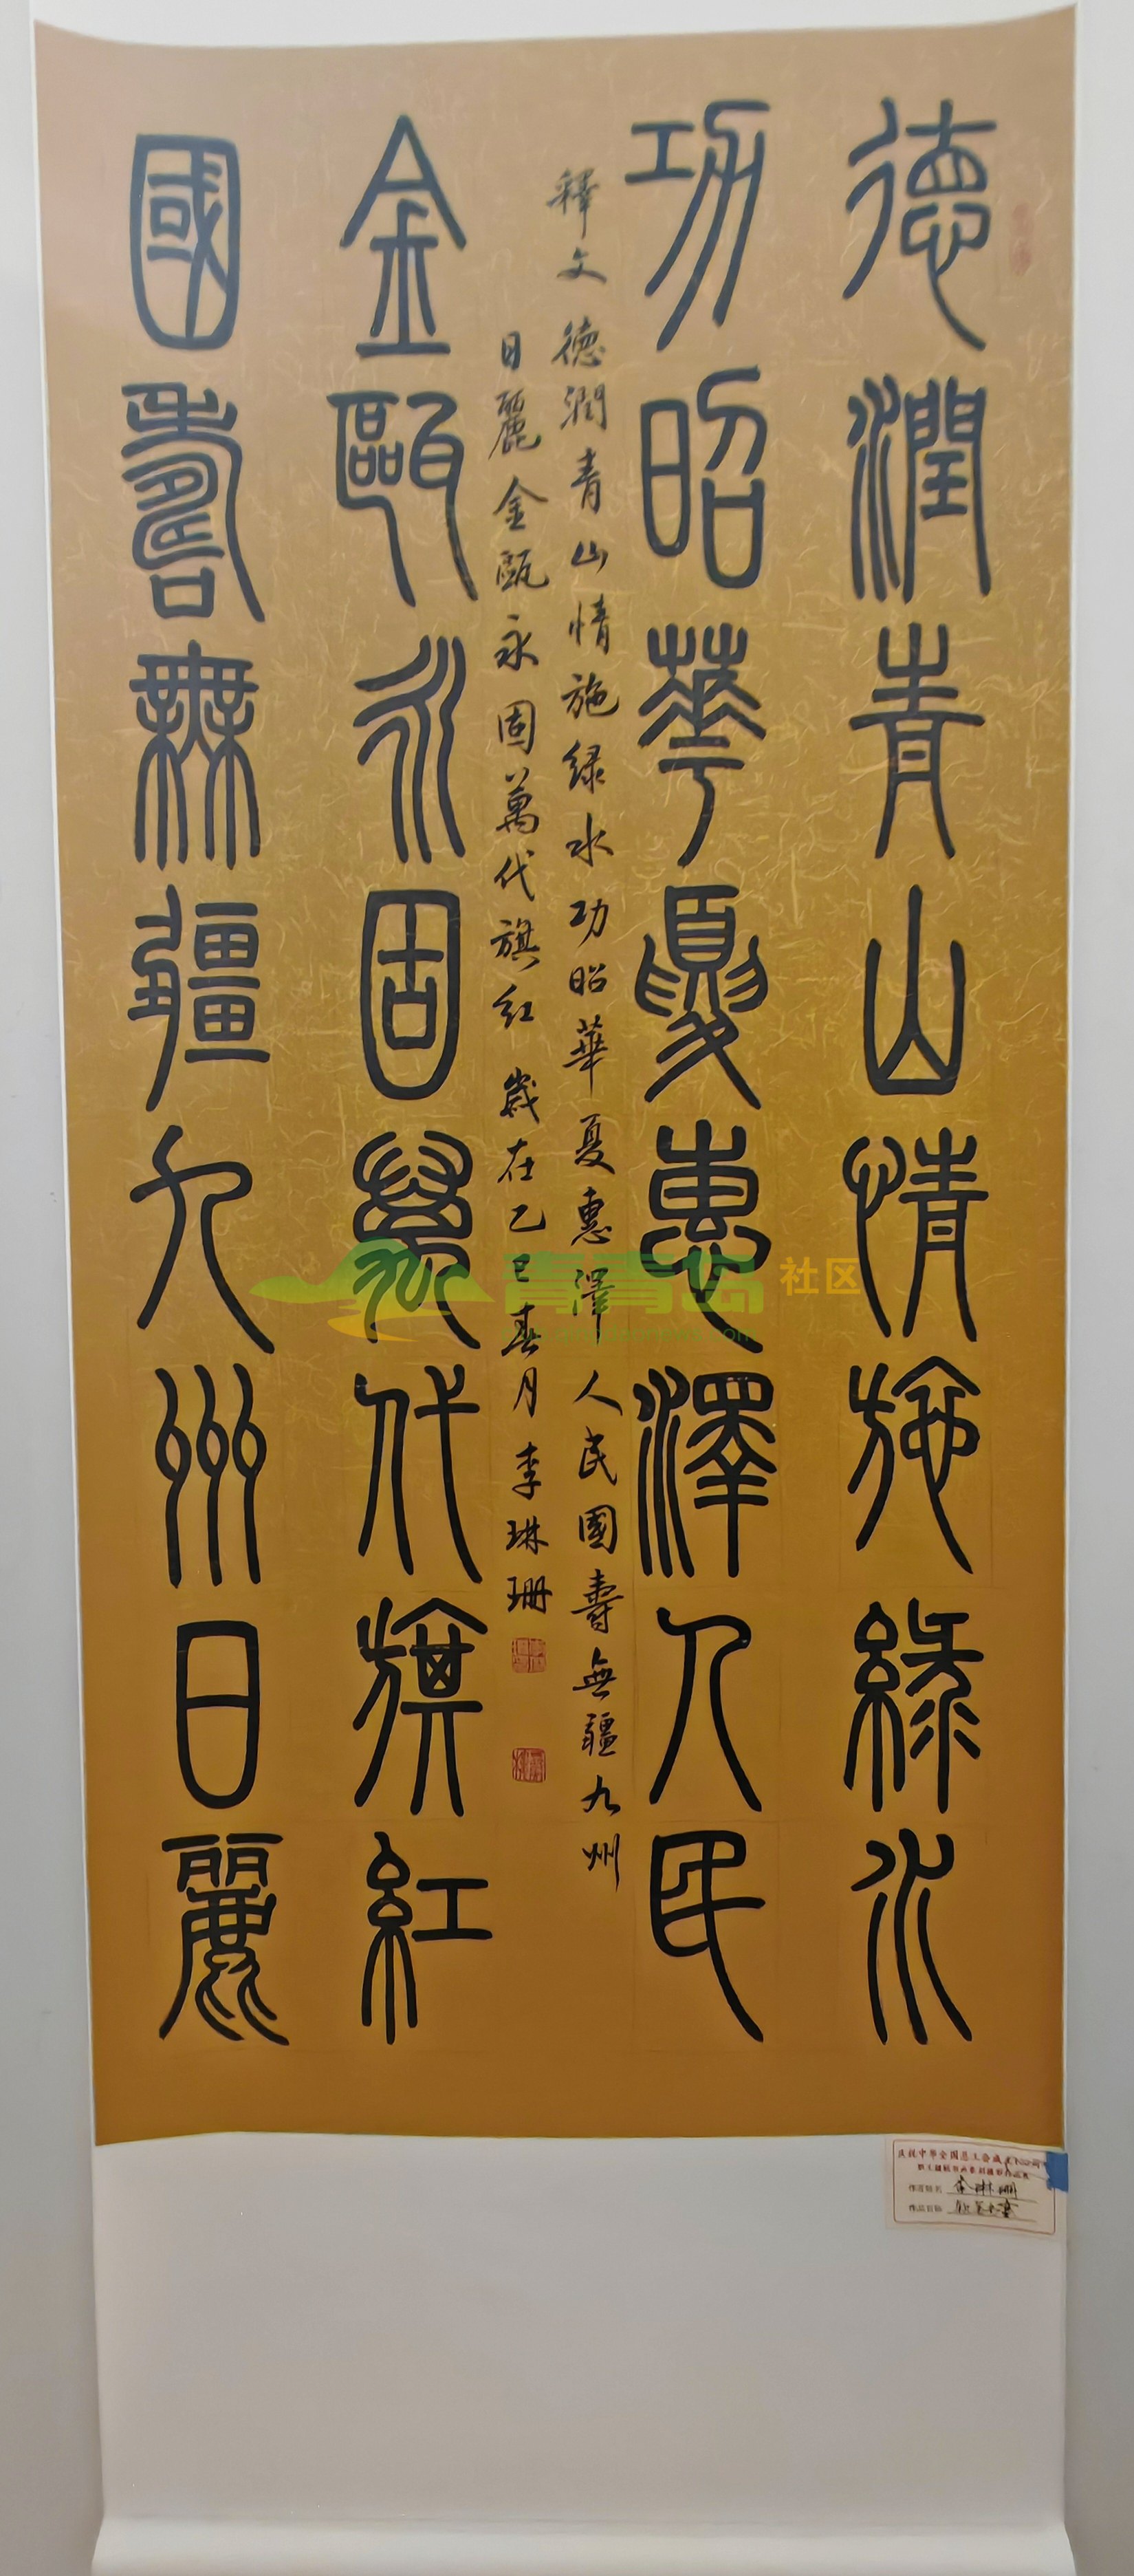 德潤青山情施綠水
功昭華夏惠澤人民
釋文 德潤青山情施绿水功昭華夏惠澤人民國壽無疆九州
日麗金甌永固萬代旗红 歲在乙巳春月 李琳珊
金甌永固萬代旗紅
國壽無疆九州日麗
青青岛 社区
庆祝中华全国总工会成立
作者姓名 李琳珊
作品名称